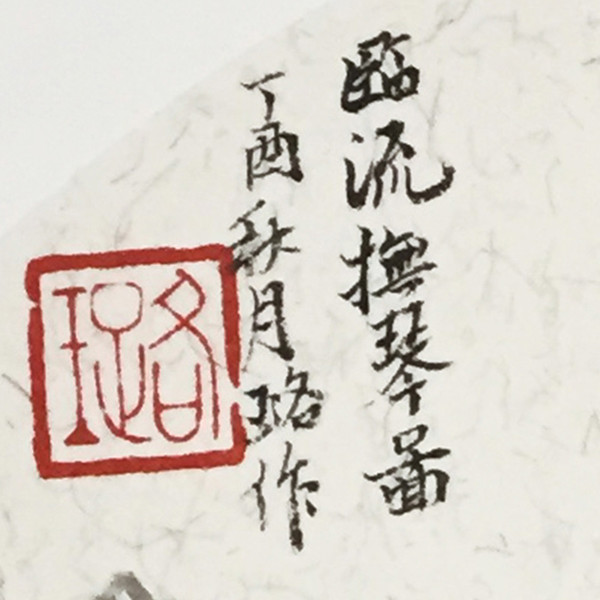 臨流撫琴圖
丁酉秋月珞作
璐